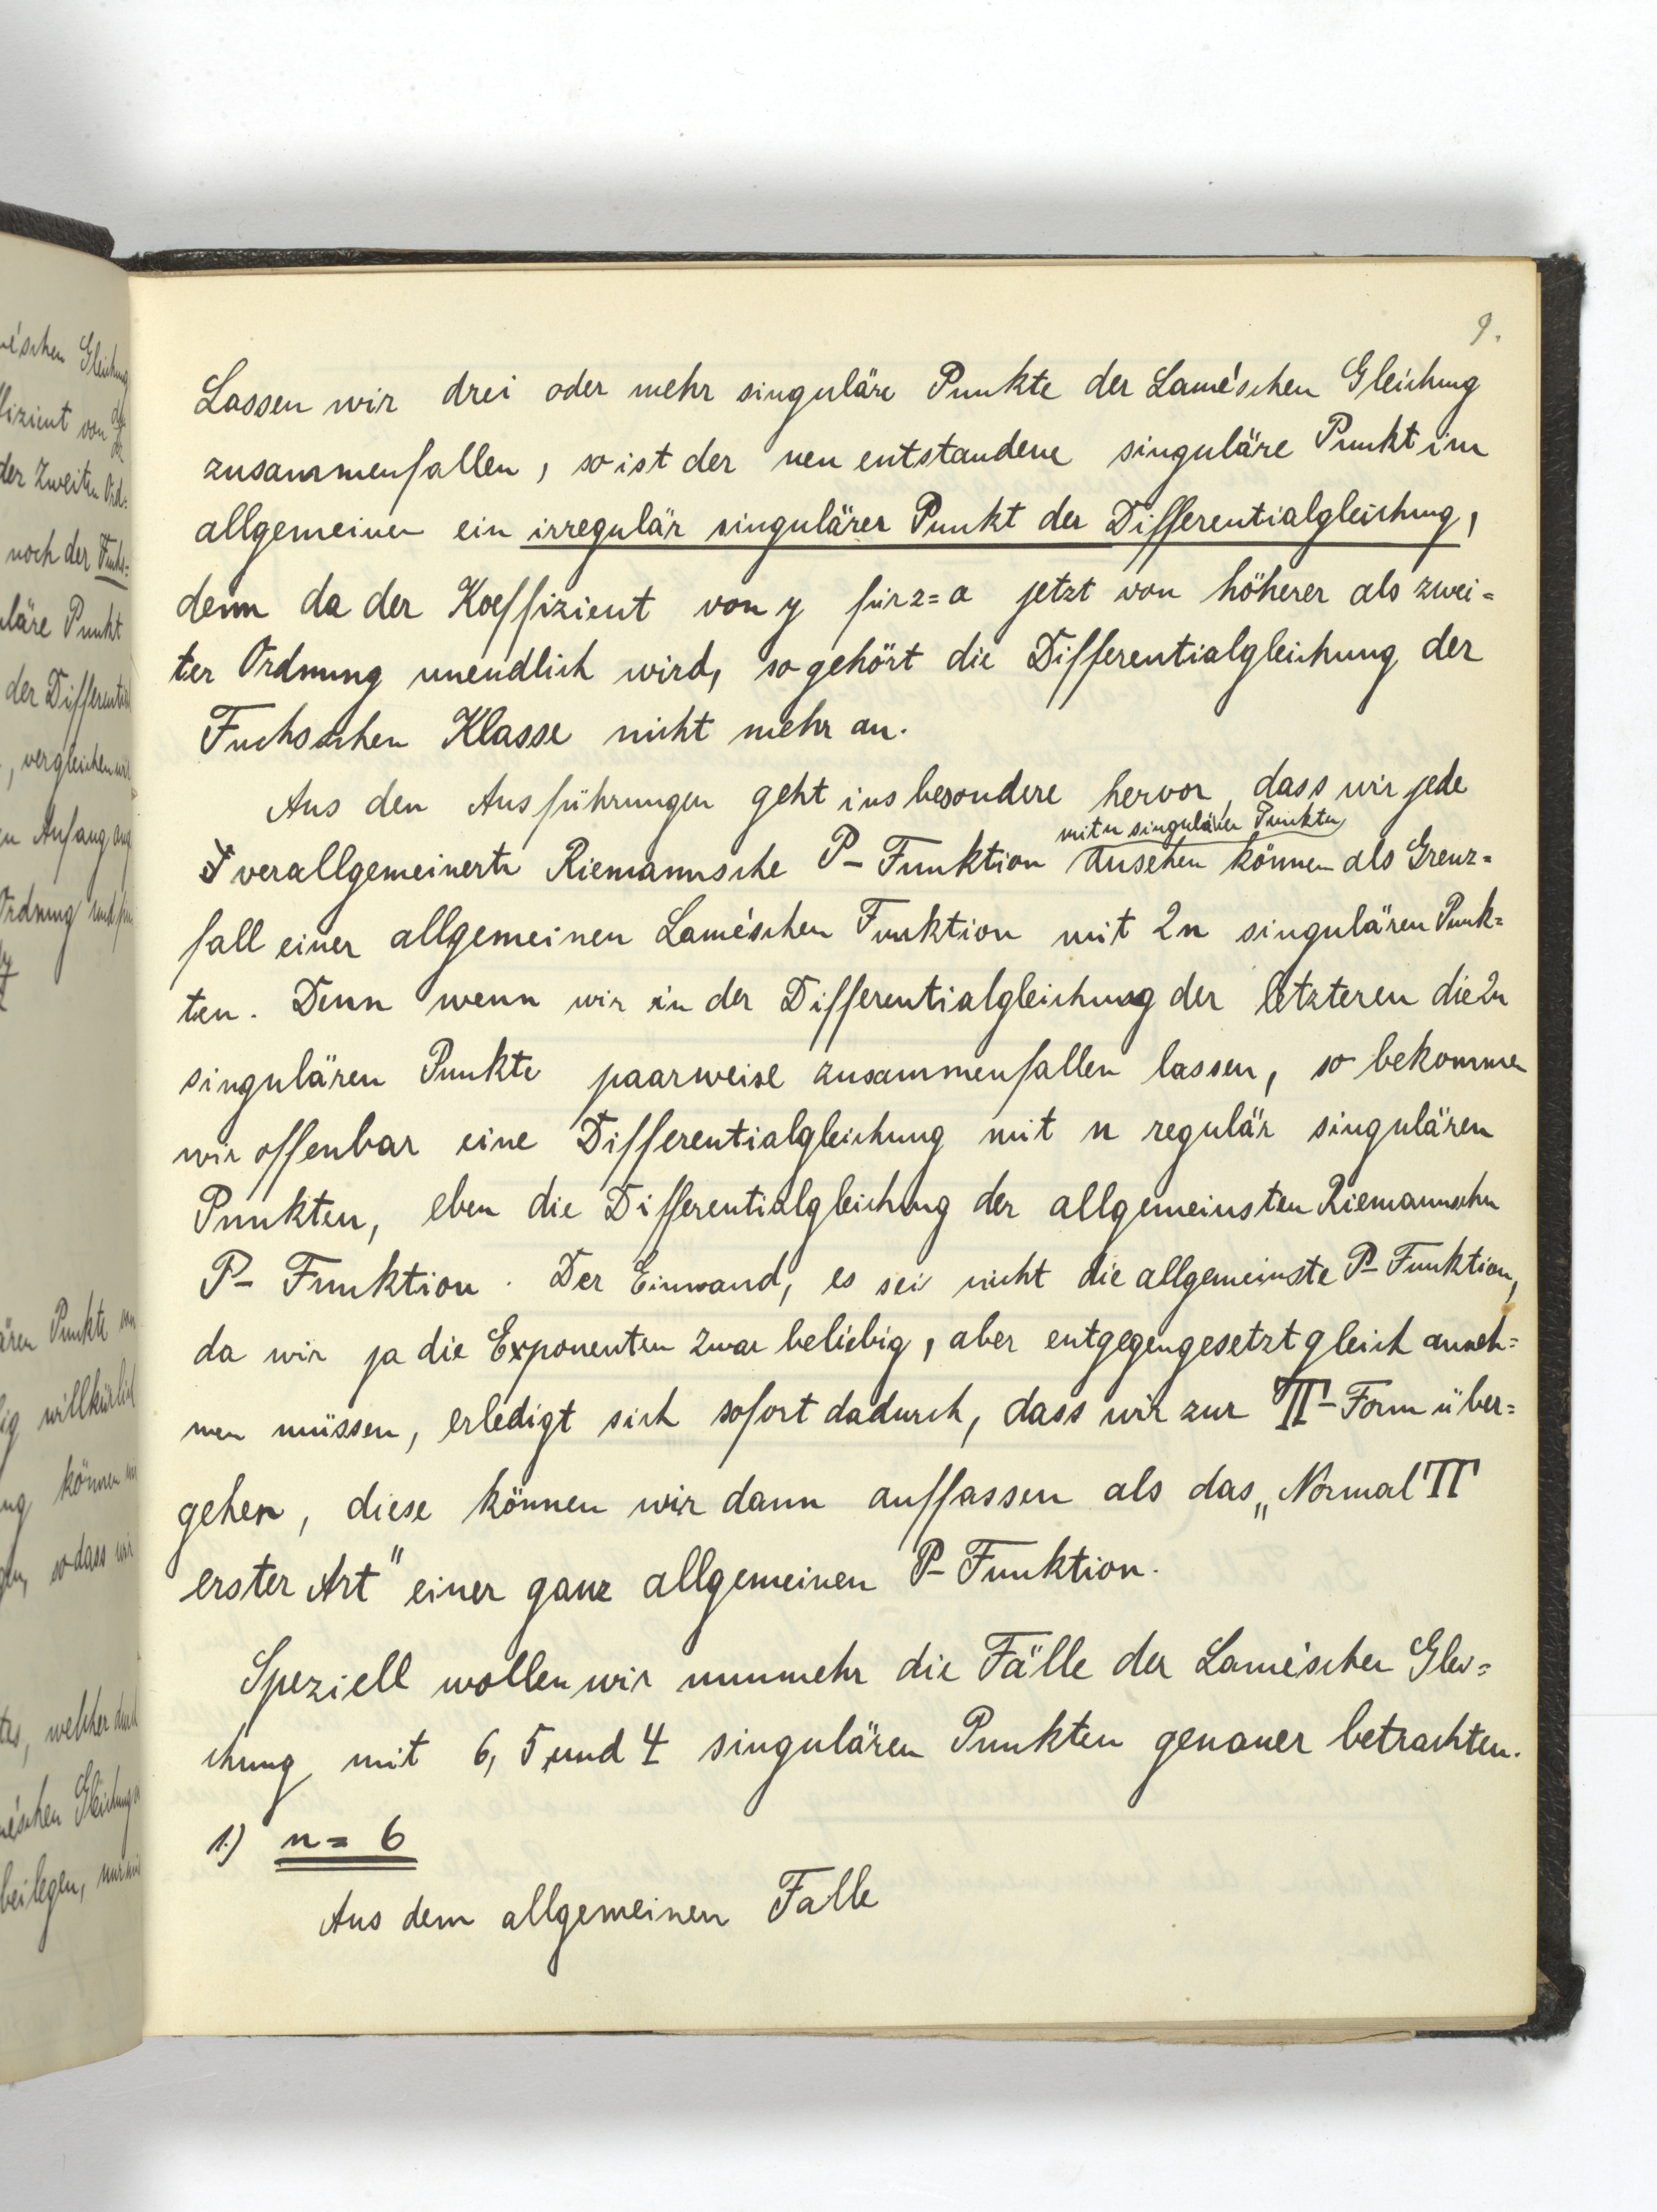 9.
Lassen wir drei oder mehr singuläre Punkte der Lamé'schen Gleichung
zusammenfallen, so ist der neu entstandene singuläre Punkt im
allgemeinen ein irregulär singulärer Punkt der Differentialgleichung,
denn da der Koeffizient von y für z=a jetzt von höherer als zwei=
ter Ordnung unendlich wird, so gehört die Differentialgleichung der
Fuchsschen Klasse nicht mehr an.
Aus den Ausführungen geht insbesondere hervor, dass wir jede
mit n singulären Punkten
verallgemeinerte Riemannsche P-Funktion ansehen können als Grenz=
fall einer allgemeinen Lamé'schen Funktion mit 2n singulären Punk=
ten. Denn wenn wir in der Differentialgleichung der letzteren die 2n
singulären Punkte paarweise zusammenfallen lassen, so bekommen
wir offenbar eine Differentialgleichung mit n regulär singulären
Punkten, eben die Differentialgleichung der allgemeinsten Riemannschen
P-Funktion. Der Einwand, es sei nicht die allgemeinste P-Funktion,
da wir ja die Exponenten zwar beliebig, aber entgegengesetzt gleich anneh=
men müssen, erledigt sich sofort dadurch, dass wir zur Π-Form über=
gehen, diese können wir dann auffassen als das „Normal Π
erster Art" einer ganz allgemeinen P-Funktion.
Speziell wollen wir nunmehr die Fälle der Lamé'schen Glei=
chung mit 6, 5, und 4 singulären Punkten genauer betrachten.
1.) n = 6
Aus dem allgemeinen Falle